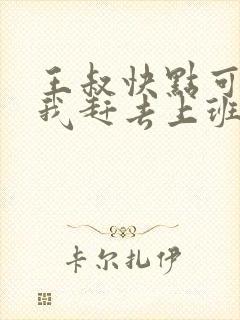 王叔快點可
我赶去上班
卡尔扎伊